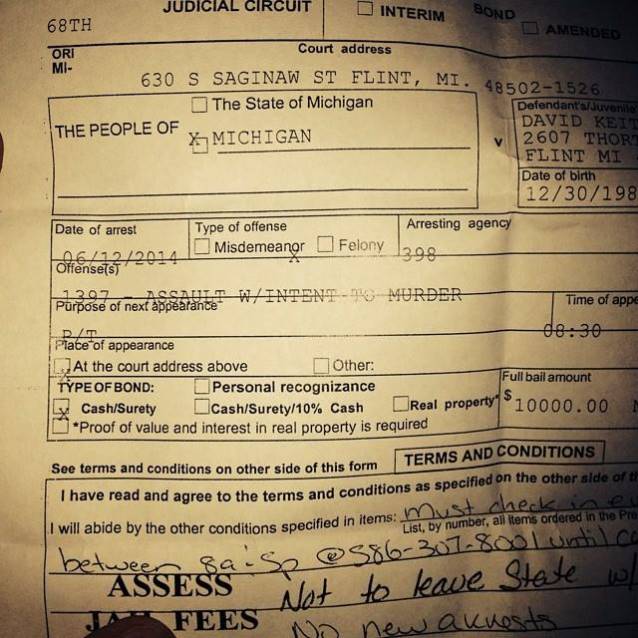 68TH JUDICIAL CIRCUIT ☐ INTERIM BOND ☐ AMENDED
ORI
MI-
Court address
630 S SAGINAW ST FLINT, MI. 48502-1526
THE PEOPLE OF
☐ The State of Michigan
X MICHIGAN
v
Defendant's/Juvenile
DAVID KEIT
2607 THOR
FLINT MI
Date of birth
12/30/198
Date of arrest
06/12/2014
Type of offense
☐ Misdemeanor X ☐ Felony
Arresting agency
398
Offense(s)
1397 - ASSAULT W/INTENT TO MURDER
Purpose of next appearance
P/T
Time of appe
08:30
Place of appearance
X At the court address above ☐ Other:
TYPE OF BOND: ☐ Personal recognizance
X Cash/Surety ☐ Cash/Surety/10% Cash ☐ Real property*
☐ *Proof of value and interest in real property is required
Full bail amount
$ 10000.00
See terms and conditions on other side of this form
TERMS AND CONDITIONS
I have read and agree to the terms and conditions as specified on the other side of
I will abide by the other conditions specified in items: must check in
List, by number, all items ordered in the Pre
between 8a-5p @ 586-307-8001 until
ASSESS
JAIL FEES
Not to leave State
No new